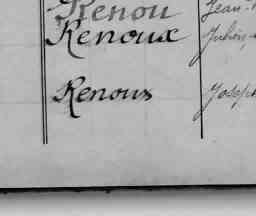 Renou Jean
Renoux Julien
Renoux Joseph